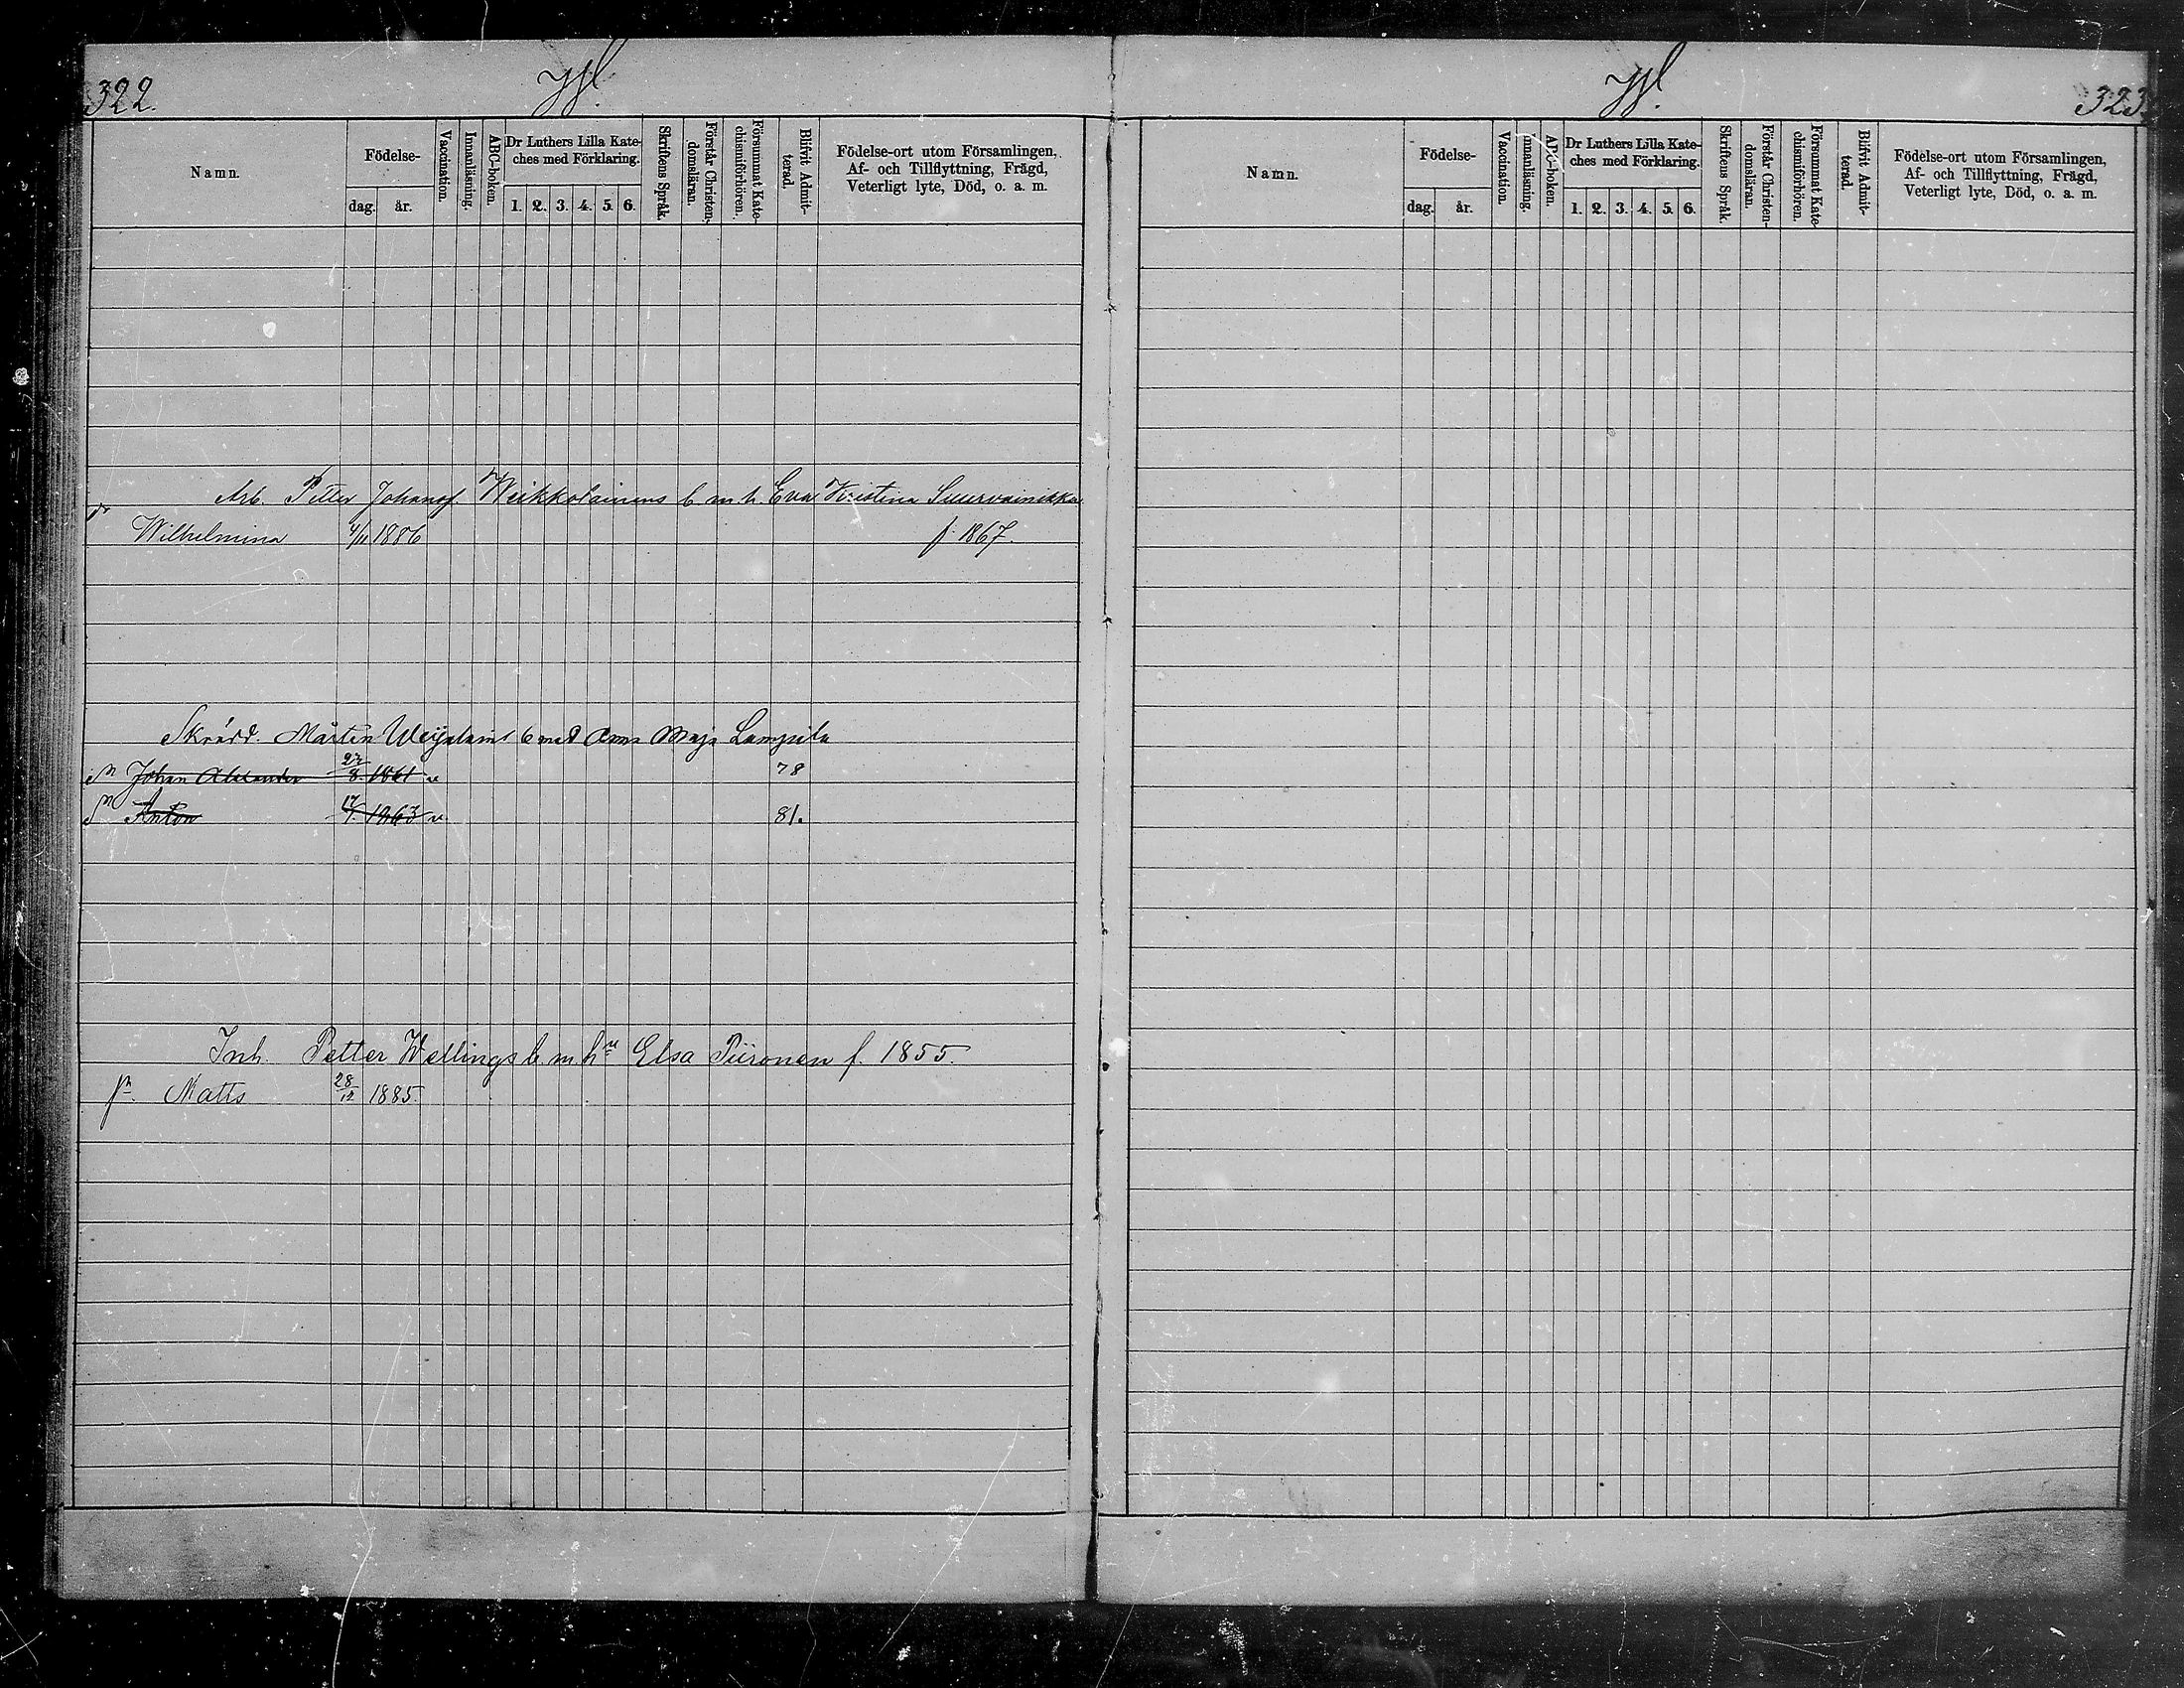 322.
Namn.
Födelse-
dag. år.
Vaccination.
Innanläsning.
ABC-boken.
Dr Luthers Lilla Kate-
ches med Förklaring.
1. 2. 3. 4. 5. 6.
Skriftens Språk.
Förstår Christen-
domsläran.
Försummat Kate-
chismiförhören.
Blifvit Admit-
terad.
Födelse-ort utom Församlingen,
Af- och Tillflyttning, Frägd,
Veterligt lyte, Död, o. a. m.
Arb. Petter Johansf. Weikkolainens b. m. h. Eva Kristina Suurvainikka
Wilhelmina 4/11 1886 f. 1867.
Skrädd. Mårten b med Anna Maja Lampila
sn Johan Alexander 27/8 1861 v 78
sn Anton 1863 v 81.
Inh. Petter Wellings b. m. hu Elsa Piironen f. 1855.
sn Matts 28/12 1885.
323.
Namn.
Födelse-
dag. år.
Vaccination.
Innanläsning.
ABC-boken.
Dr Luthers Lilla Kate-
ches med Förklaring.
1. 2. 3. 4. 5. 6.
Skriftens Språk.
Förstår Christen-
domsläran.
Försummat Kate-
chismiförhören.
Blifvit Admit-
terad.
Födelse-ort utom Församlingen,
Af- och Tillflyttning, Frägd,
Veterligt lyte, Död, o. a. m.